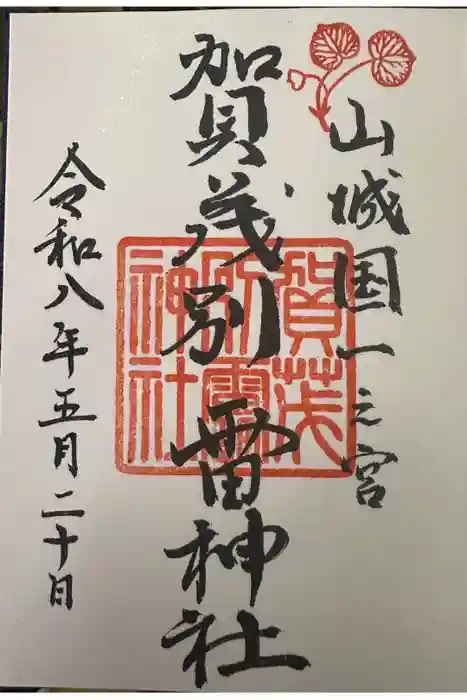 山城国一之宮
賀茂別雷神社
賀茂別雷神社
令和八年五月二十日